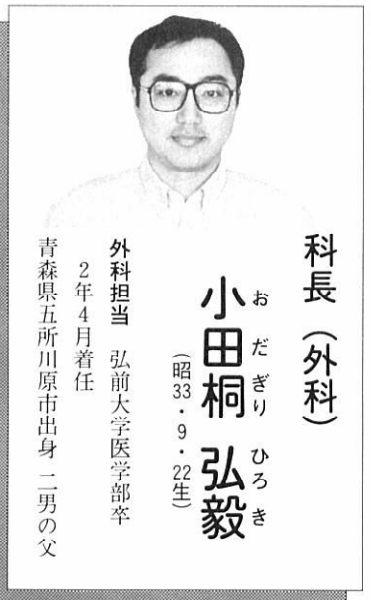 科長（外科）
おだぎり ひろき
小田桐 弘毅
（昭33・9・22生）
外科担当 弘前大学医学部卒
2年4月着任
青森県五所川原市出身 二男の父